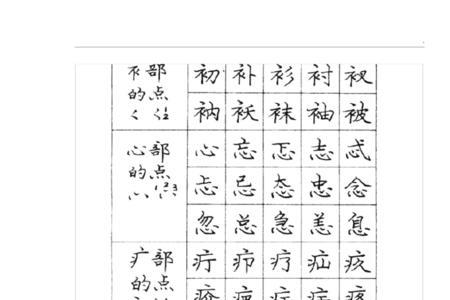 衤部 初 补 衫 衬 衩
的点 衲 袄 袜 袖 被
心部 心 忘 忑 志 忒
的点 忐 忌 态 忠 念
忽 总 急 恙 息
疒部 疔 疖 疗 疝 疚
的点